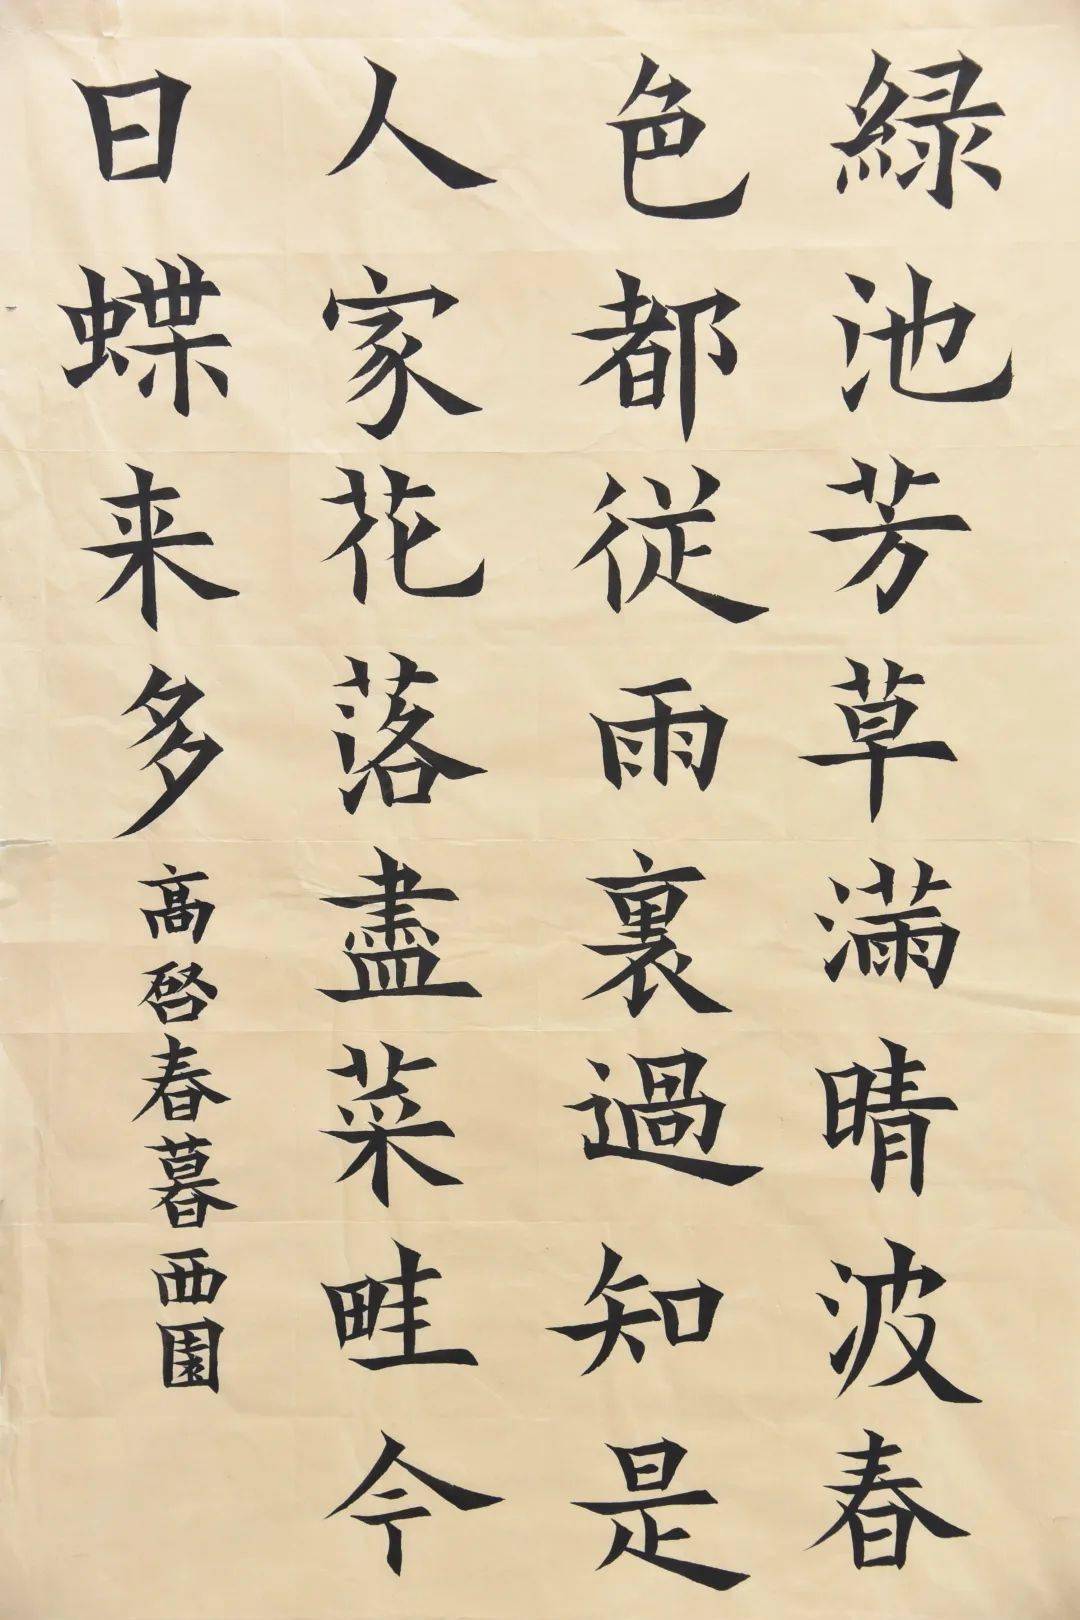 緑池芳草滿晴波春
色都従雨裏過知是
人家花落盡菜畦今
日蝶来多
高啓春暮西園